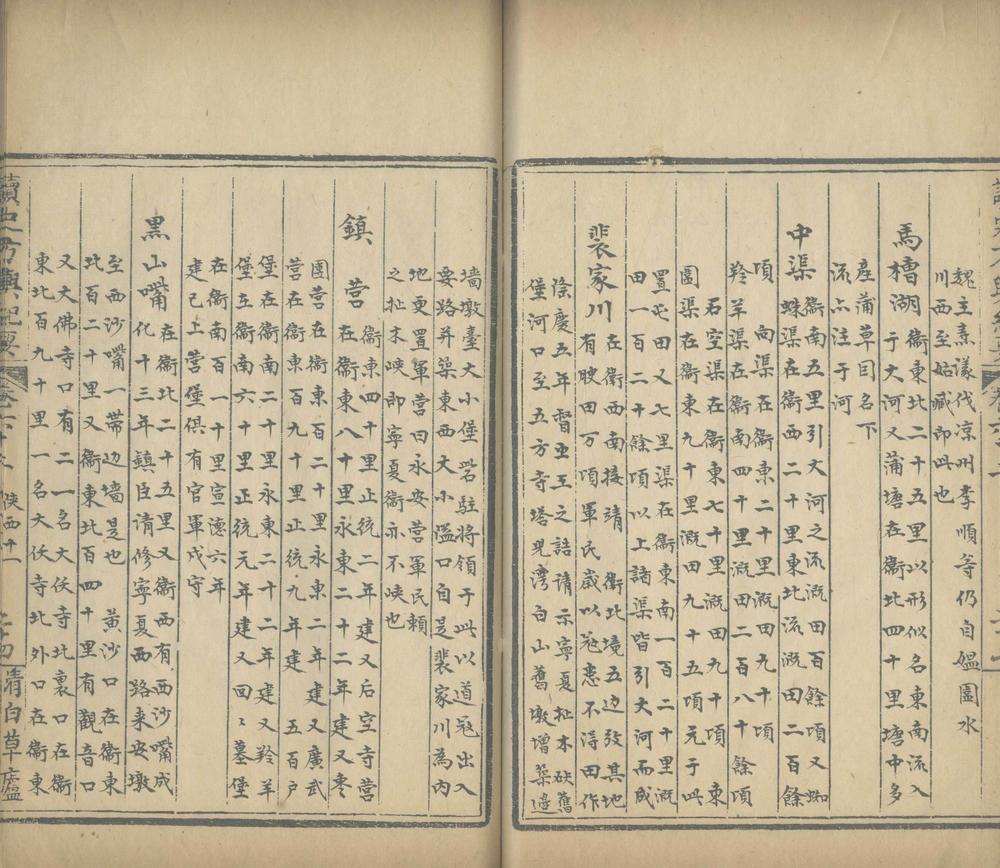 魏主素漾伐凉州李順等仍自媼圍水
川西至姑臧即此也
馬槽湖
衞東北二十五里以形似名東南流入
于大河又蒲塘在衞北四十里塘中多
產蒲草因名下
流亦注于河
中渠
衞南五里引大河之流溉田百餘項又蜘
蛛渠在衞西二十里東北流溉田二百餘
項 向渠在衞東二十里溉田九十項
羚羊渠在衞南四十里溉田二百八十餘項
石空渠在衞東七十里溉田九十項 東
圓渠在衞東九十里溉田九十五項元于此
置屯田又七里渠在衞東南一百二十里溉
田一百二十餘項以上諸渠皆引大河而成
裴家川
在衞西南接靖 衞北境五边致其地
有腴田万項軍民歲以冦患不淂田作
隆慶五年督虫王之誥请示寧夏扯木硤舊
堡河口至五方寺塔児灣白山舊墩增築邉
墙墩臺大小堡砦駐將领于此以道冦出入
要路并築東西大小隘口自是裴家川為内
地更置軍营曰永安营軍民賴
之扯木峡即寧夏衞亦不峡也
鎮营
衞東四十里正統二年建又后空寺营
在衞東八十里永東二十二年建又枣
園营在衞東百二十里永東二年建又廣武
营在衞東百九十里正統九年建 五百户
堡在衞南二十里永東二十二年建又羚羊
堡立衞南六十里正統元年建又回〻墓堡
在衞南百一十里宣德六年
建已上营堡俱有官軍戍守
黒山嘴
在衞北二十五里又衞西有西沙嘴成
化十三年鎮臣请修寧夏西路来安墩
至西沙嘴一帶边墙是也 黄沙口在衞東
北百二十里又衞東北百四十里有觀音口
又大佛寺口有二一名大伏寺北裏口在衞
東北百九十里一名大伏寺北外口在衞東
讀史方輿紀要 陝西十一 清白草廬